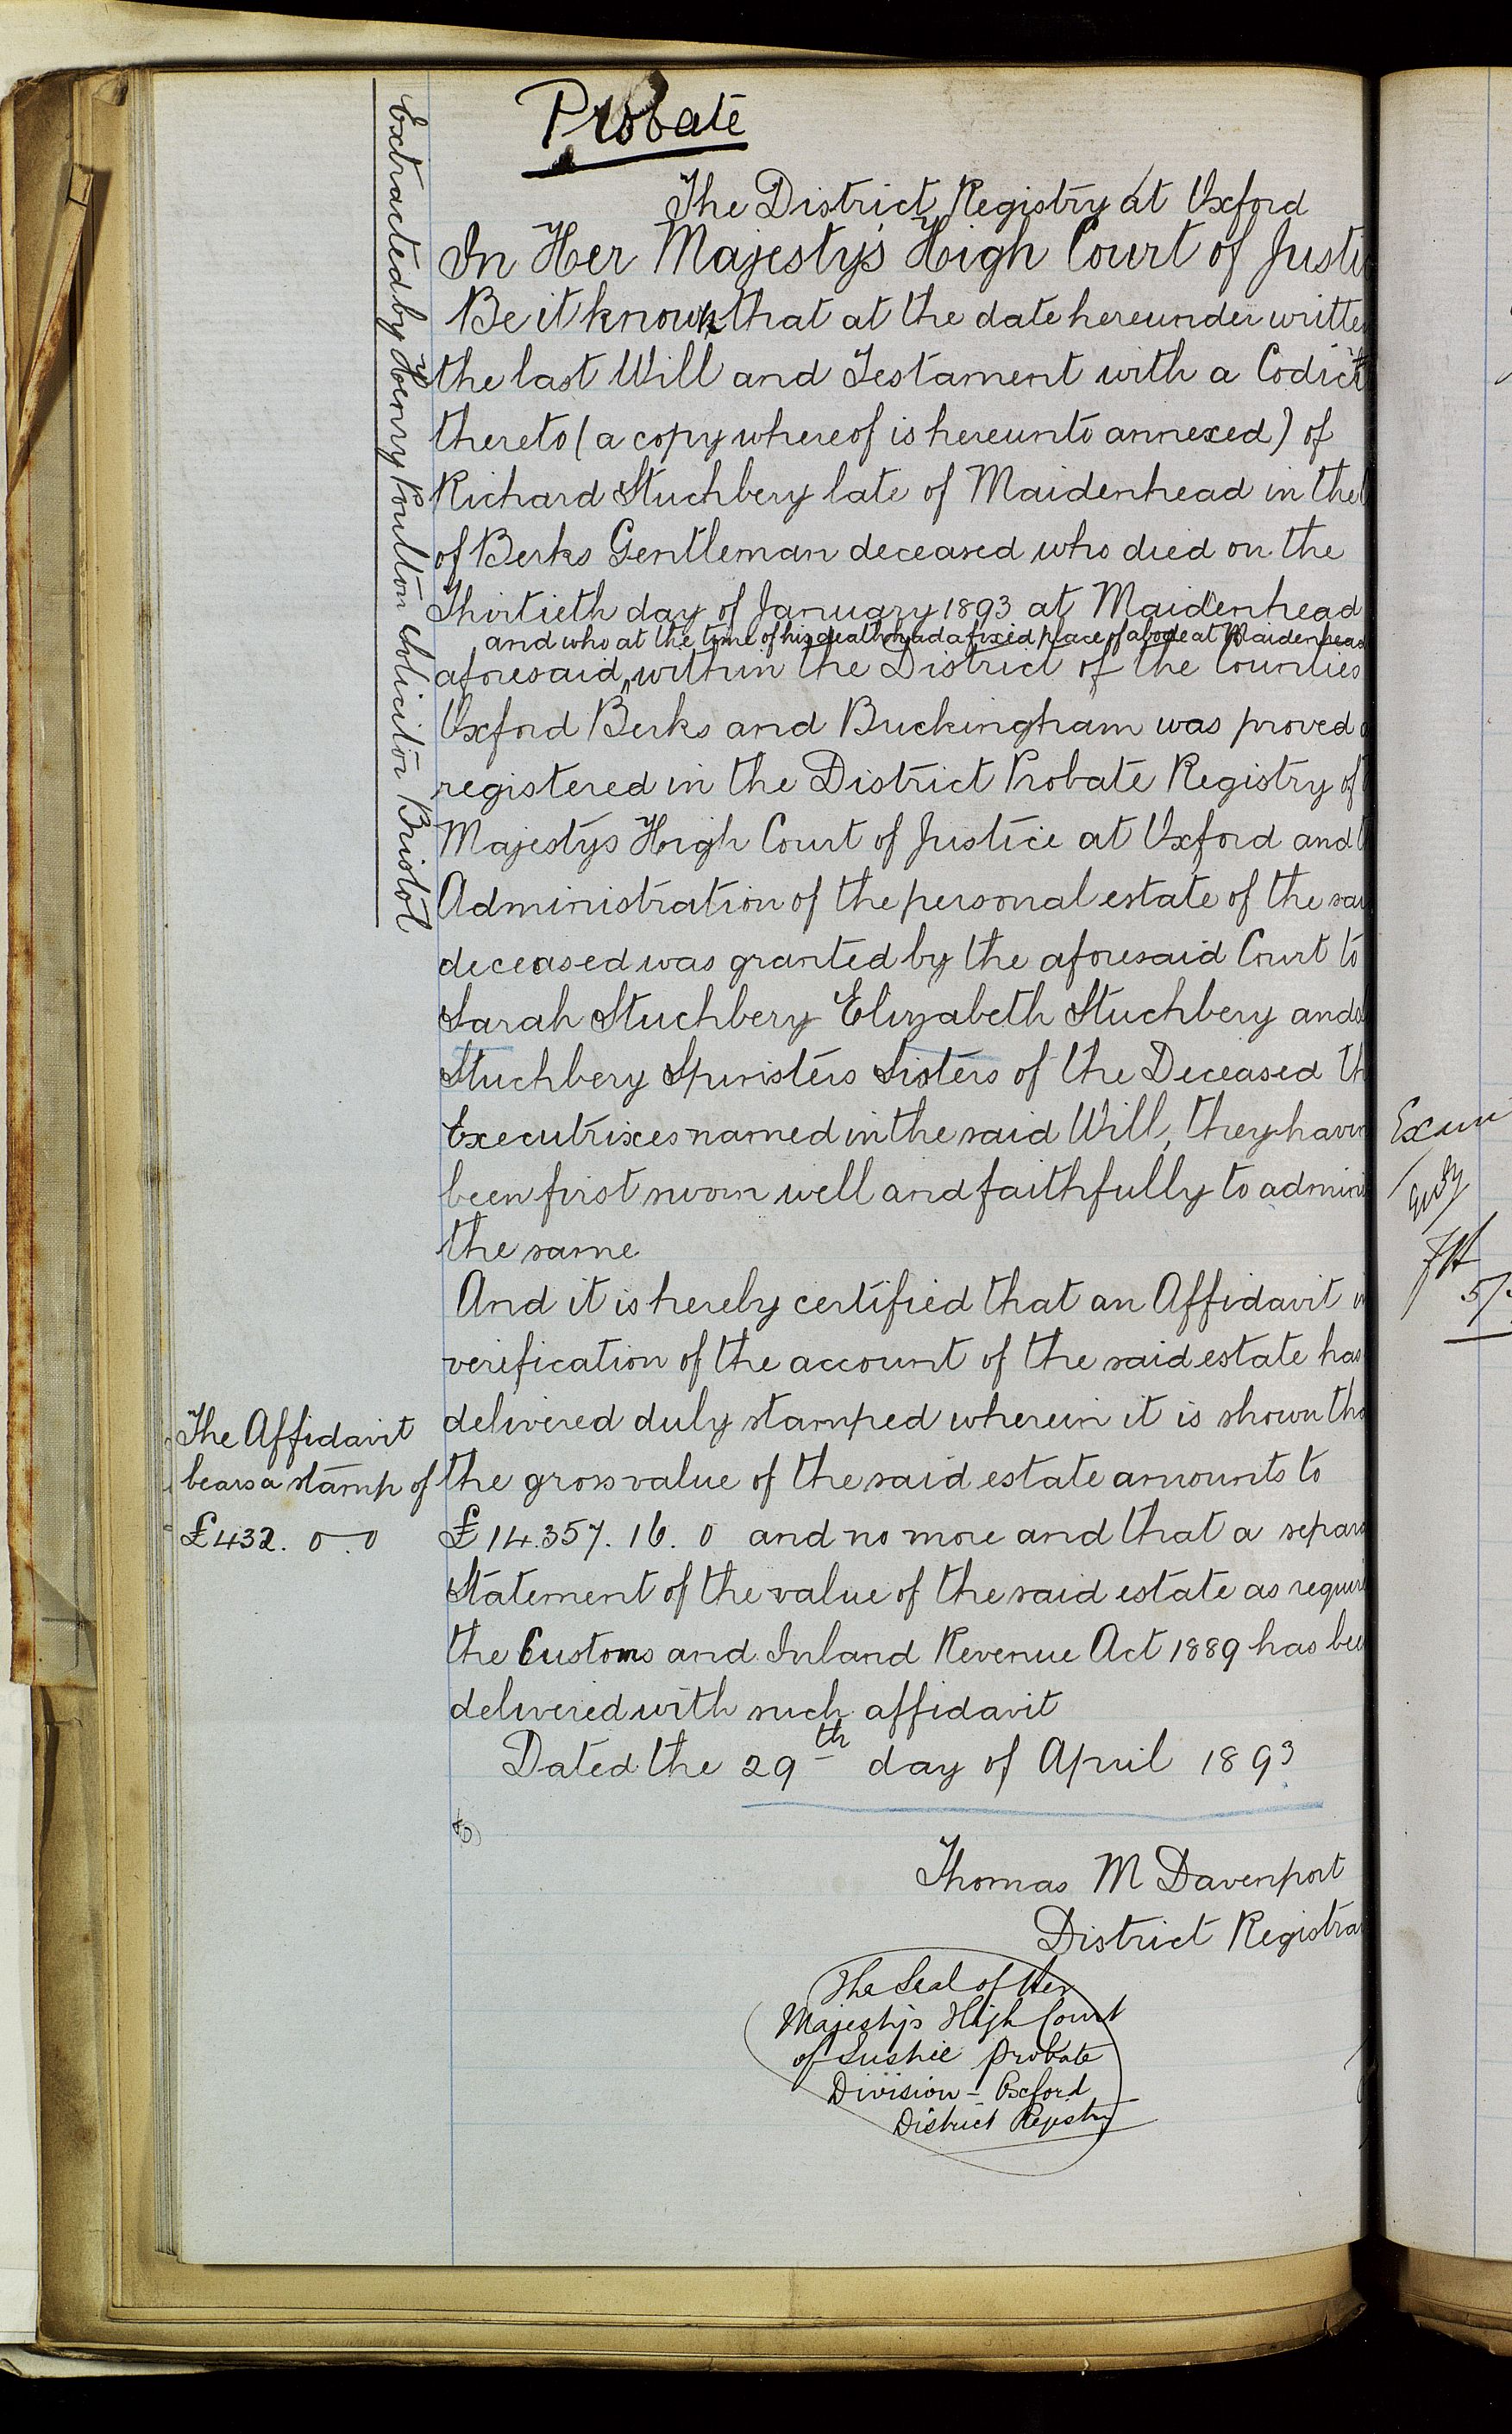 Probate
The District Registry at Oxford
In Her Majesty's High Court of Justi
Be it known that at the date hereunder writte
the last Will and Testament with a Codici
thereto (a copy whereof is hereunto annexed) of
Richard Stuchbery late of Maidenhead in the
of Berks Gentleman deceased who died on the
Thirtieth day of January 1893 at Maidenhead
and who at the time of his death had a fixed place of abode at Maidenhead
aforesaid, within the District of the Counties
Oxford Berks and Buckingham was proved
registered in the District Probate Registry of
Majestys High Court of Justice at Oxford and
Administration of the personal estate of the sai
deceased was granted by the aforesaid Court to
Sarah Stuchbery Elizabeth Stuchbery and
Stuchbery Spinsters Sisters of the Deceased th
Executrixes named in the said Will, they havin
been first sworn well and faithfully to admini
the same
And it is hereby certified that an Affidavit
verification of the account of the said estate has
delivered duly stamped wherein it is shown tha
the gross value of the said estate amounts to
£14.357. 16. 0 and no more and that a separa
Statement of the value of the said estate as requir
the Customs and Inland Revenue Act 1889 has bee
delivered with such affidavit
Dated the 29th day of April 1893
Thomas M Davenport
District Registra
The Seal of Her
Majesty's High Court
of Justice Probate
Division - Oxford
District Registry
Extracted by Henry Poulton Solicitor Bristol
The Affidavit
bears a stamp of
£432. 0. 0
Exam
5/